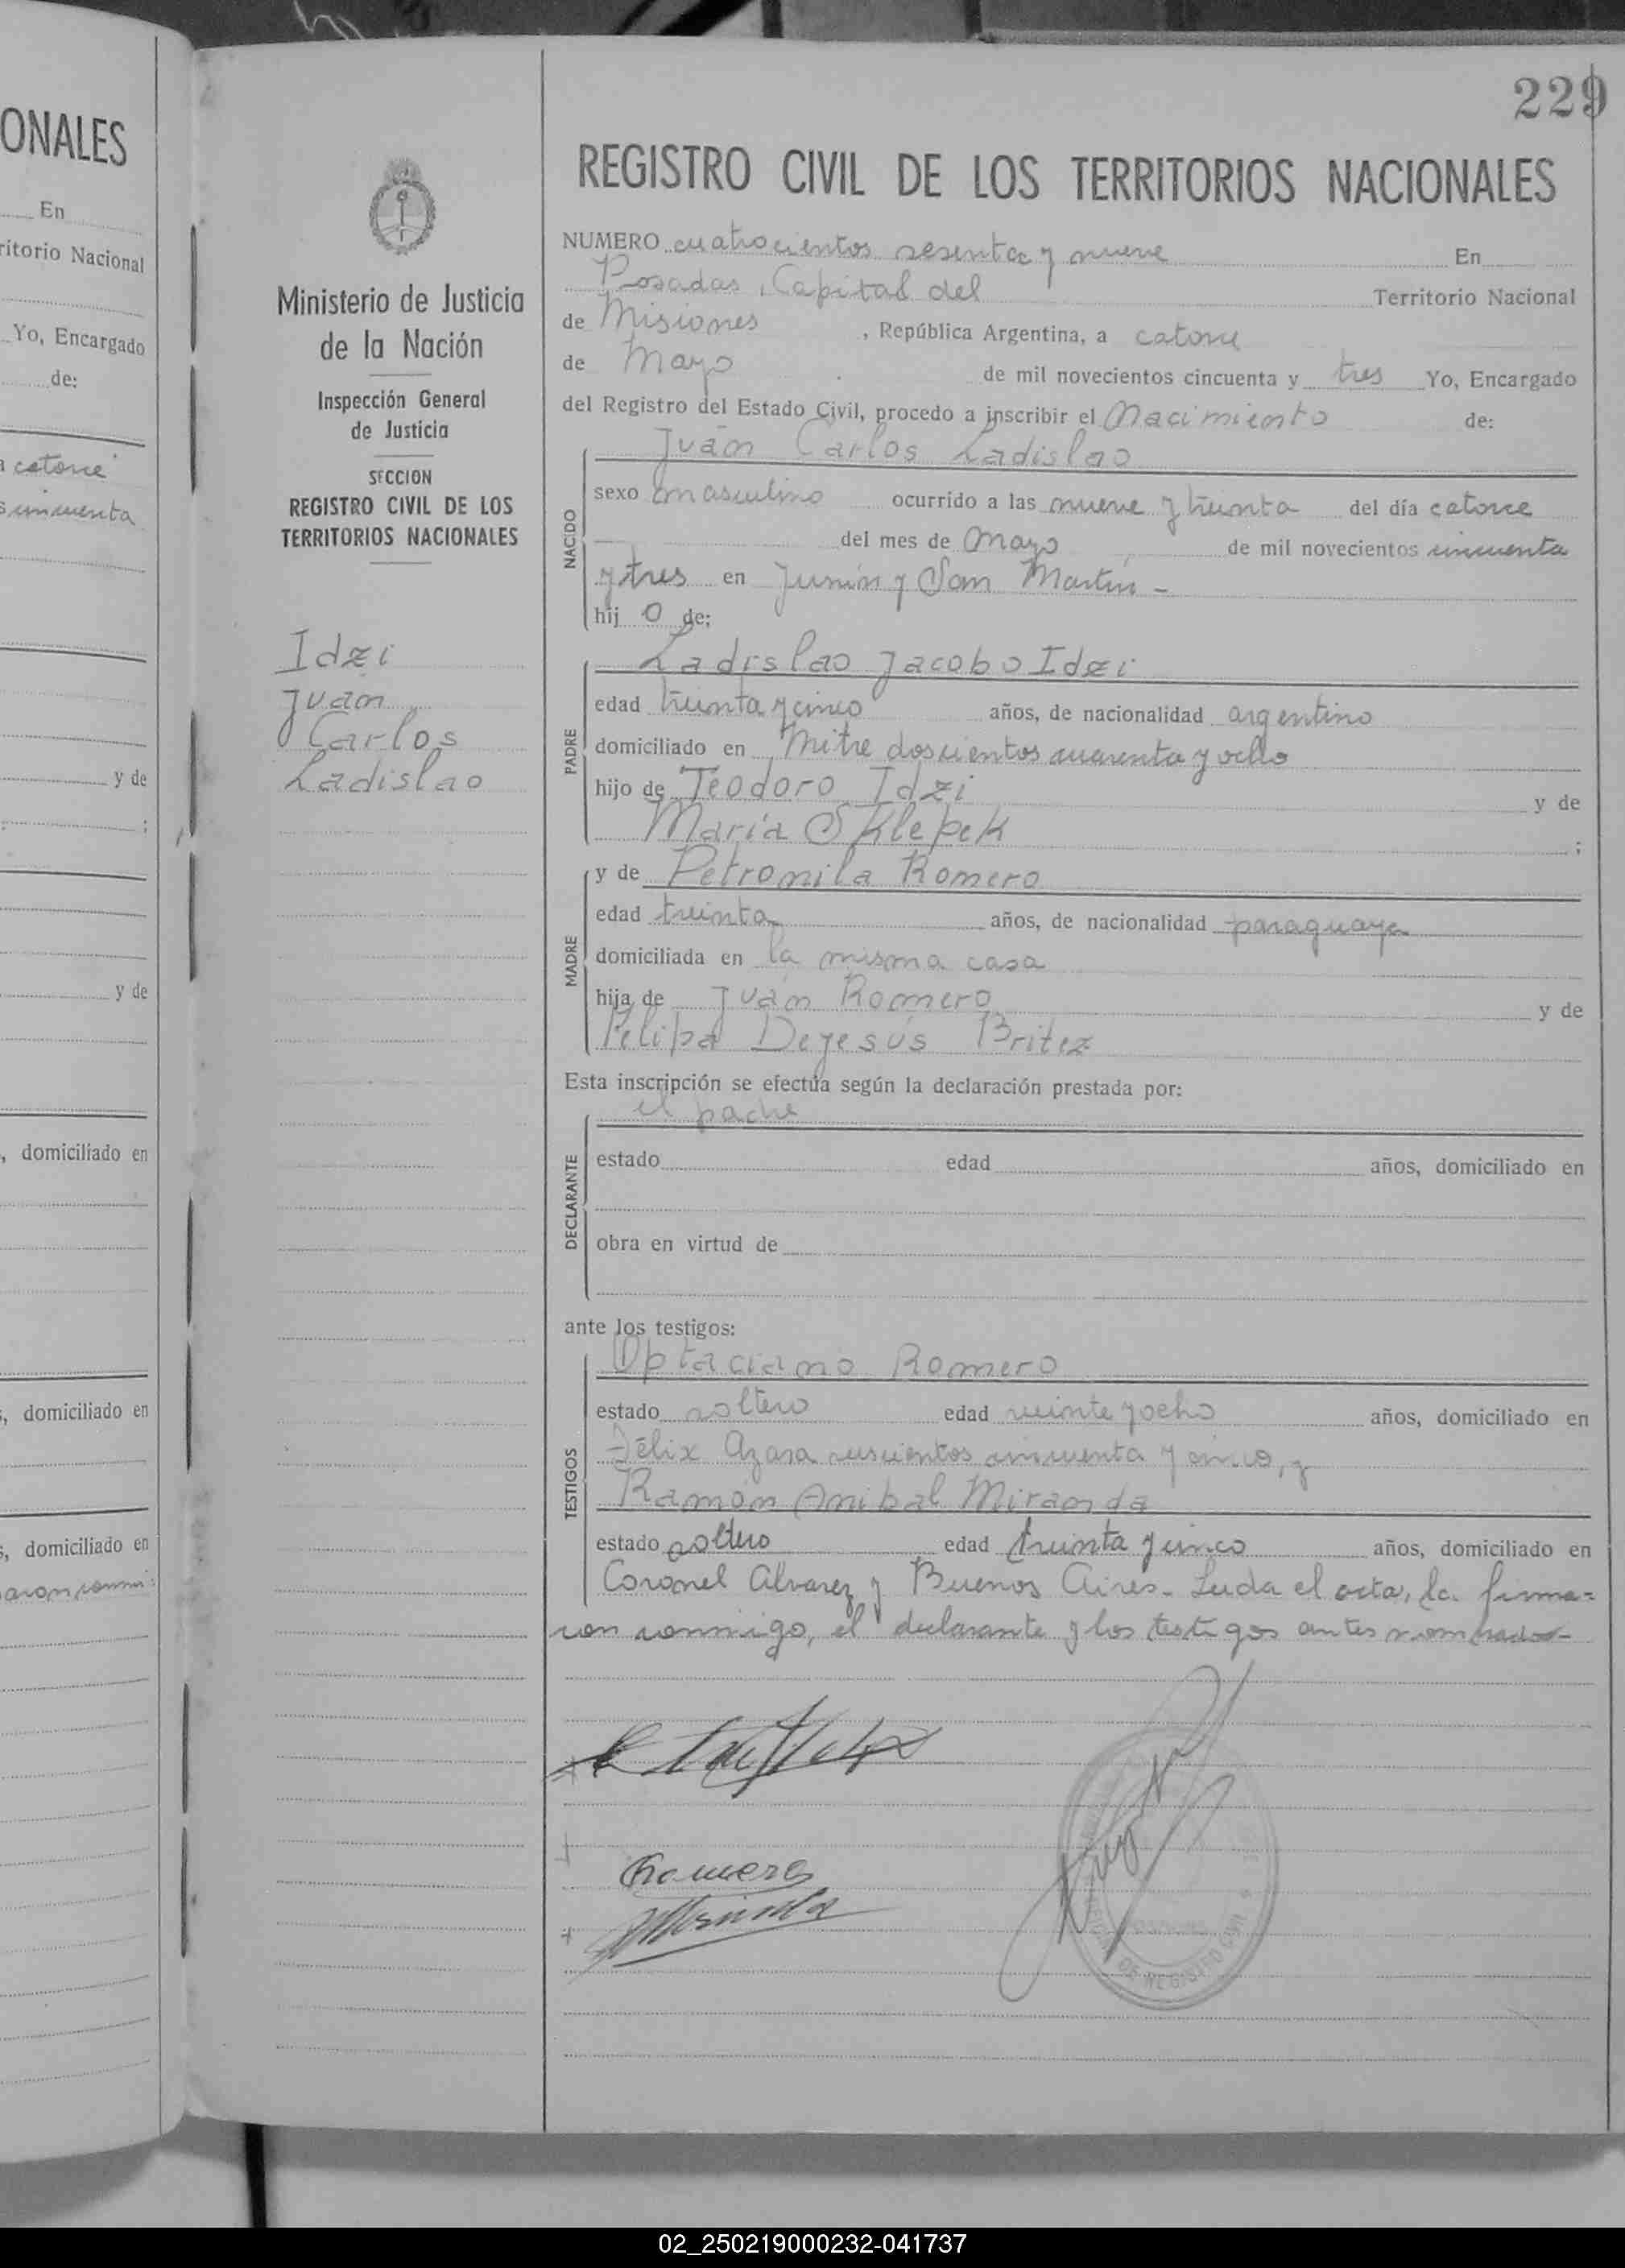 ONALES
En
ritorio Nacional
Yo, Encargado
de:
a catorce
cincuenta
y de
;
y de
, domiciliado en
s, domiciliado en
s, domiciliado en
Ministerio de Justicia
de la Nación
Inspección General
de Justicia
SECCION
REGISTRO CIVIL DE LOS
TERRITORIOS NACIONALES
Idzi
Juan
Carlos
Ladislao
229
REGISTRO CIVIL DE LOS TERRITORIOS NACIONALES
NUMERO cuatrocientos sesenta y nueve En
Posadas, Capital del Territorio Nacional
de Misiones, República Argentina, a catorce
de Mayo de mil novecientos cincuenta y tres Yo, Encargado
del Registro del Estado Civil, procedo a inscribir el Nacimiento de:
Juan Carlos Ladislao
NACIDO
sexo masculino ocurrido a las nueve y treinta del día catorce
del mes de Mayo de mil novecientos cincuenta
y tres en Junín y San Martín -
hij o de;
PADRE
Ladislao Jacobo Idzi
edad treinta y cinco años, de nacionalidad argentino
domiciliado en Mitre doscientos cuarenta y ocho
hijo de Teodoro Idzi y de
María Sklepek ;
MADRE
y de Petronila Romero
edad treinta años, de nacionalidad paraguaya
domiciliada en la misma casa
hija de Juan Romero y de
Felipa Dejesús Britez
Esta inscripción se efectúa según la declaración prestada por:
el padre
DECLARANTE
estado edad años, domiciliado en
obra en virtud de
ante los testigos:
TESTIGOS
Optaciano Romero
estado soltero edad veinte y ocho años, domiciliado en
Félix Azara cincuenta y cinco, y
Ramón Anibal Miranda
estado soltero edad treinta y cinco años, domiciliado en
Coronel Alvarez y Buenos Aires. Leida el acta, la firma=
ron conmigo, el declarante y los testigos antes nombrados-
Romero
DE REGISTRO CIVIL
02_250219000232-041737